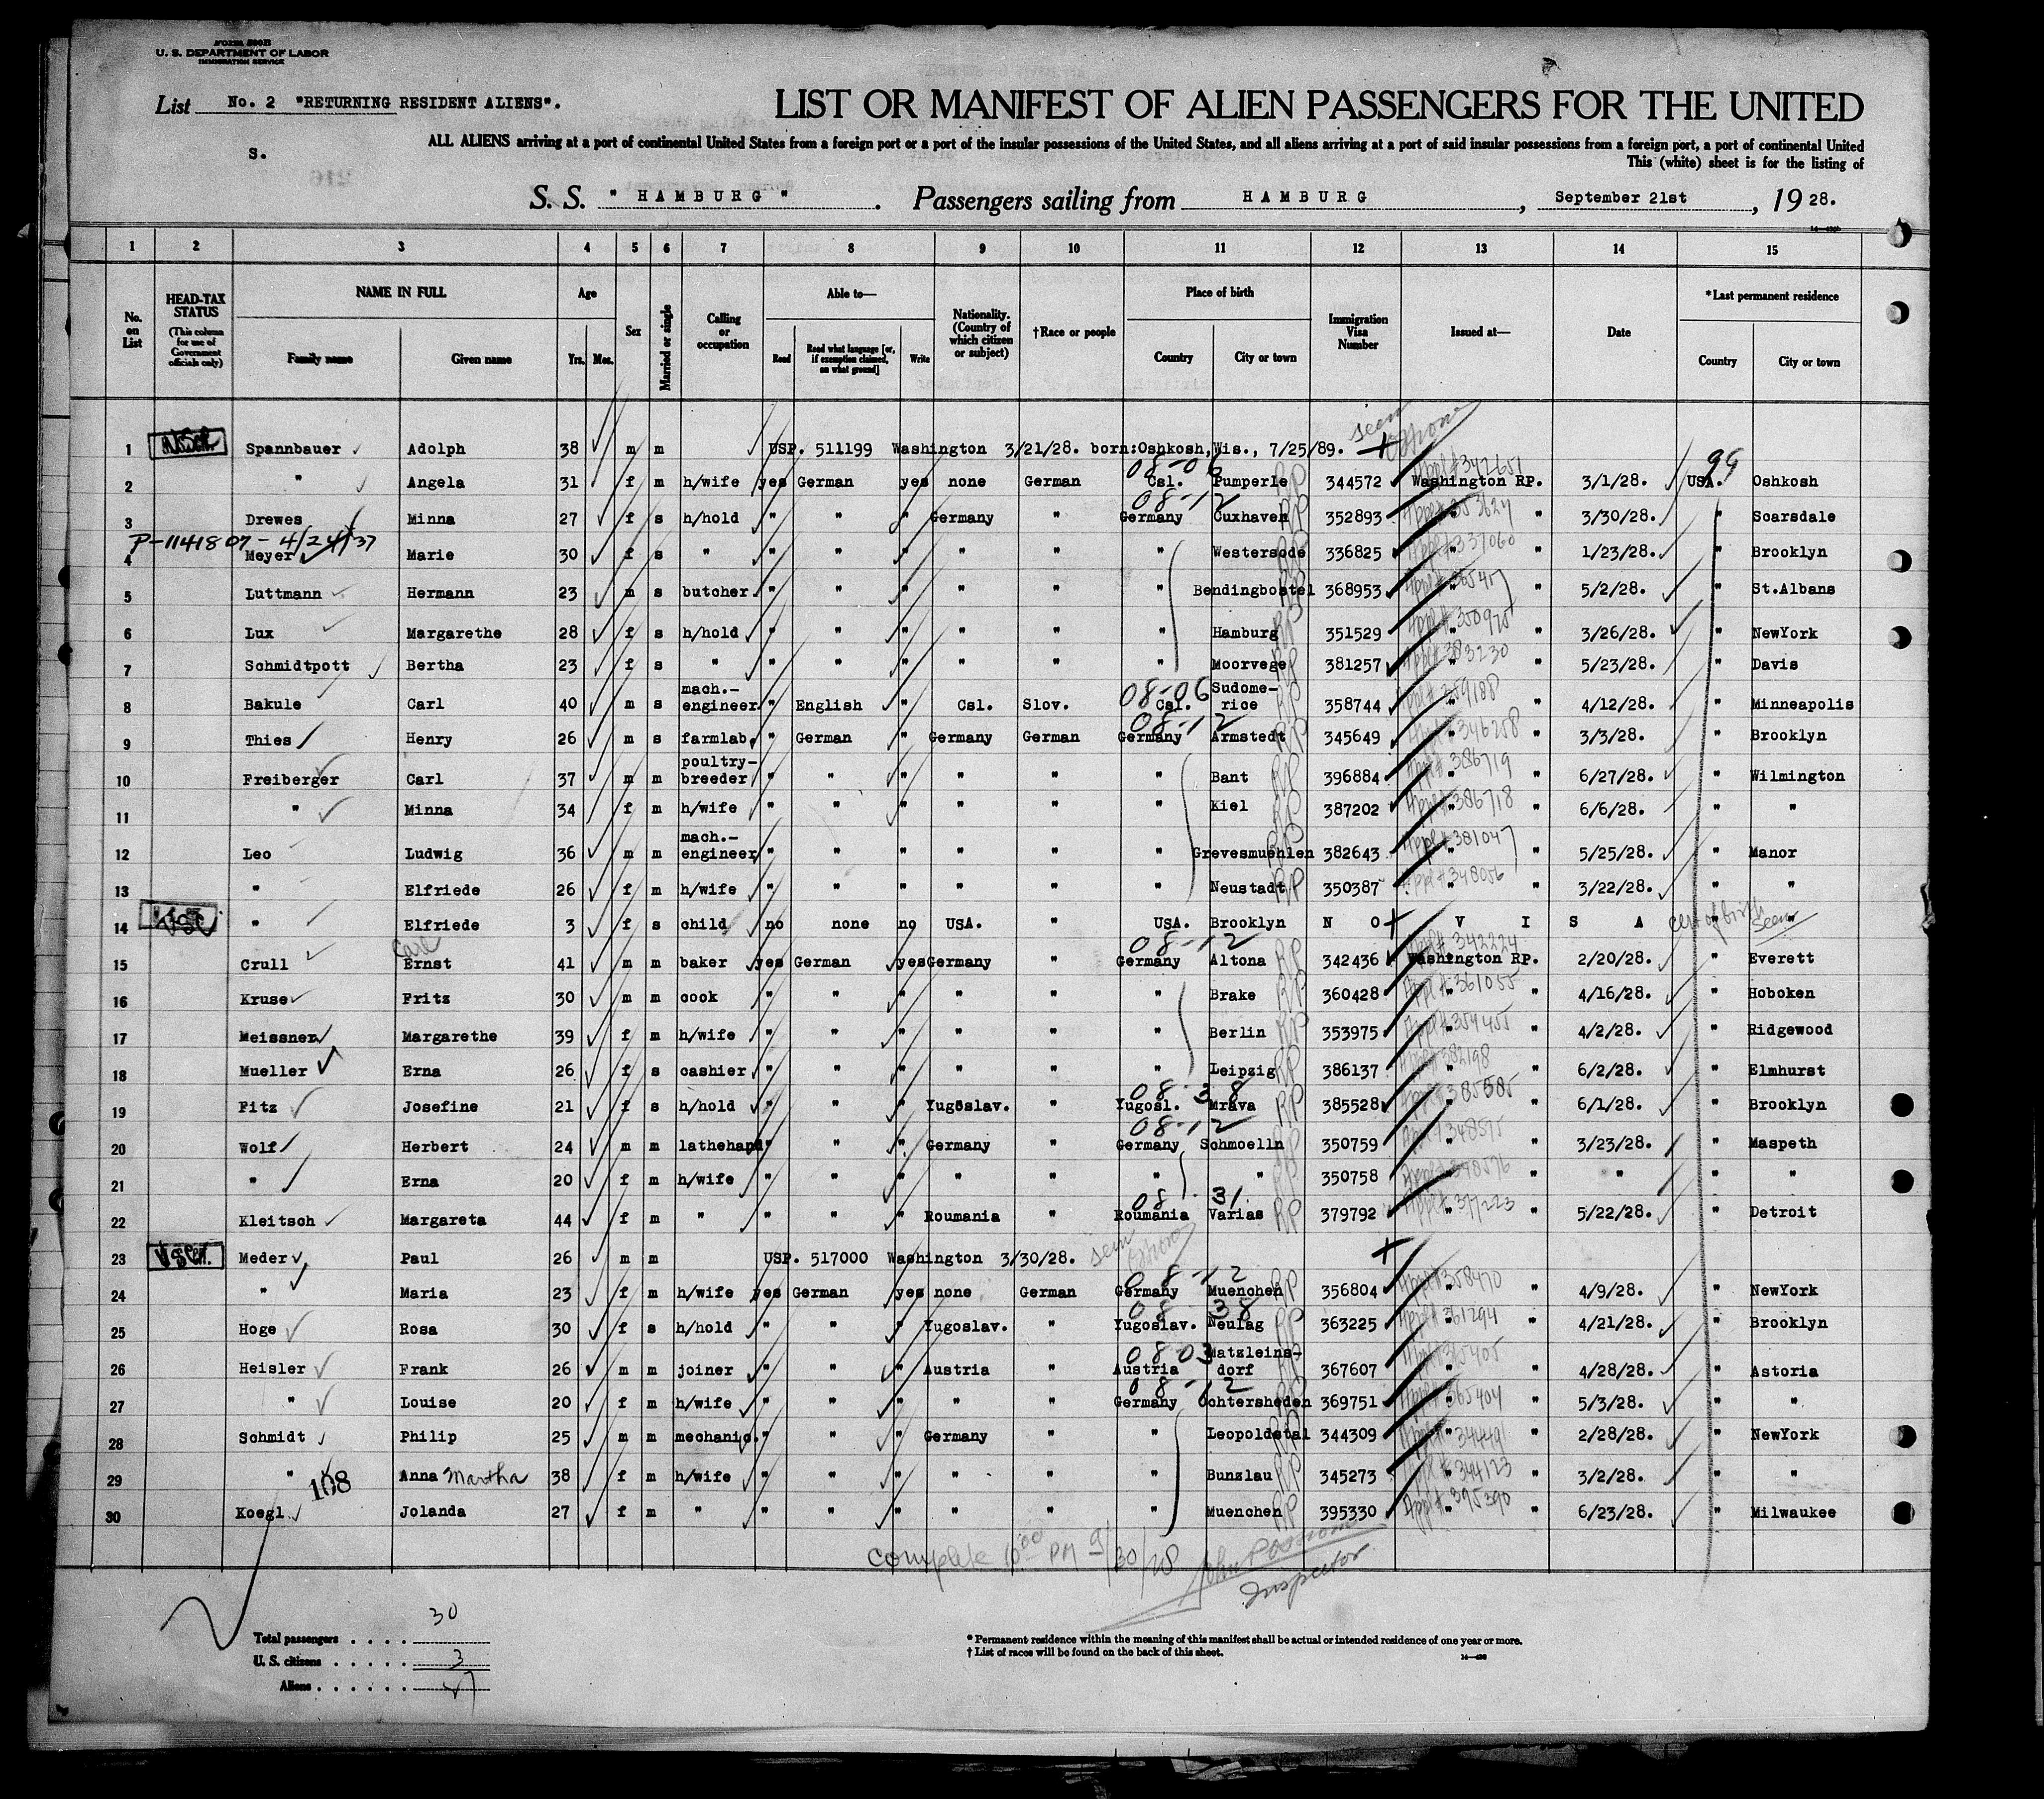 FORM 500B
U. S. DEPARTMENT OF LABOR
IMMIGRATION SERVICE
List No. 2 "RETURNING RESIDENT ALIENS".
LIST OR MANIFEST OF ALIEN PASSENGERS FOR THE UNITED
S.
ALL ALIENS arriving at a port of continental United States from a foreign port or a port of the insular possessions of the United States, and all aliens arriving at a port of said insular possessions from a foreign port, a port of continental United
This (white) sheet is for the listing of
S. S. " H A M B U R G " . Passengers sailing from H A M B U R G , September 21st , 19 28.
1 2 3 4 5 6 7 8 9 10 11 12 13 14 15
No. on List
HEAD-TAX STATUS (This column for use of Government officials only)
NAME IN FULL
Family name Given name
Age
Yrs. Mos.
Sex
Married or single
Calling or occupation
Able to—
Read Read what language [or, if exemption claimed, on what ground] Write
Nationality. (Country of which citizen or subject)
†Race or people
Place of birth
Country City or town
Immigration Visa Number
Issued at—
Date
*Last permanent residence
Country City or town
1 Spannbauer Adolph 38 m m USP. 511199 Washington 3/21/28. born:Oshkosh,Wis., 7/25/89. seen
08-06 99
2 " Angela 31 f m h/wife yes German yes none German Csl. Pumperle RP 344572 Washington RP. 3/1/28. USA. Oshkosh
08-12
3 Drewes Minna 27 f s h/hold " " " Germany " Germany Cuxhaven RP 352893 " " 3/30/28. " Scarsdale
P-1141807-4/24/37
4 Meyer Marie 30 f s " " " " " " " Westersode RP 336825 Appl# 337060 " " 1/23/28. " Brooklyn
5 Luttmann Hermann 23 m s butcher " " " " " " Bendingbostel 368953 " " 5/2/28. " St.Albans
6 Lux Margarethe 28 f s h/hold " " " " " " Hamburg RP 351529 " " 3/26/28. " NewYork
7 Schmidtpott Bertha 23 f s " " " " " " " Moorvege RP 381257 " " 5/23/28. " Davis
8 Bakule Carl 40 m s mach.-engineer " English " Csl. Slov. 08-06 Csl. Sudome-rice RP 358744 " " 4/12/28. " Minneapolis
08-12
9 Thies Henry 26 m s farmlab. " German " Germany German Germany Armstedt RP 345649 Appl# 346258 " " 3/3/28. " Brooklyn
10 Freiberger Carl 37 m m poultry-breeder " " " " " " Bant RP 396884 Appl# 386719 " " 6/27/28. " Wilmington
11 " Minna 34 f m h/wife " " " " " " Kiel RP 387202 Appl# 386718 " " 6/6/28. " "
12 Leo Ludwig 36 m m mach.-engineer " " " " " " Grevesmuehlen RP 382643 Appl# 381047 " " 5/25/28. " Manor
13 " Elfriede 26 f m h/wife " " " " " " Neustadt RP 350387 Appl# 348056 " " 3/22/28. " "
14 " Elfriede 3 f s child no none no USA. " USA. Brooklyn N O V I S A Cert of birth seen " "
Carl 08-12
15 Crull Ernst 41 m m baker yes German yes Germany " Germany Altona RP 342436 Appl# 342224 Washington RP. 2/20/28. " Everett
16 Kruse Fritz 30 m m cook " " " " " " Brake RP 360428 Appl# 361055 " " 4/16/28. " Hoboken
17 Meissner Margarethe 39 f m h/wife " " " " " " Berlin RP 353975 Appl# 354455 " " 4/2/28. " Ridgewood
18 Mueller Erna 26 f s cashier " " " " " " Leipzig RP 386137 Appl# 382198 " " 6/2/28. " Elmhurst
08-38
19 Fitz Josefine 21 f s h/hold " " " Yugoslav. " Yugosl. Mrava RP 385528 " " 6/1/28. " Brooklyn
08-12
20 Wolf Herbert 24 m m lathehand " " " Germany " Germany Schmoelln RP 350759 Appl# 348575 " " 3/23/28. " Maspeth
21 " Erna 20 f m h/wife " " " " " " " RP 350758 Appl# 348576 " " " " "
08-31
22 Kleitsch Margareta 44 f m " " " " Roumania " Roumania Varias RP 379792 Appl# 377223 " " 5/22/28. " Detroit
23 Meder Paul 26 m m USP. 517000 Washington 3/30/28. seen
08-12
24 " Maria 23 f m h/wife yes German yes none German Germany Muenchen RP 356804 Appl# 358470 " " 4/9/28. " NewYork
08-38
25 Hoge Rosa 30 f s h/hold " " " Yugoslav. " Yugoslav. Neulag RP 363225 Appl# 361294 " " 4/21/28. " Brooklyn
08-03
26 Heisler Frank 26 m m joiner " " " Austria " Austria Matzleins-dorf RP 367607 Appl# 365405 " " 4/28/28. " Astoria
08-12
27 " Louise 20 f m h/wife " " " " " Germany Ochtersheden 369751 Appl# 365404 " " 5/3/28. " "
28 Schmidt Philip 25 m m mechanic. " " " Germany " " Leopoldstal RP 344309 " " 2/28/28. " NewYork
29 " Anna Martha 38 f m h/wife " " " " " " Bunzlau RP 345273 Appl# 344123 " " 3/2/28. " "
108
30 Koegl Jolanda 27 f m " " " " " " " Muenchen RP 395330 Appl# 395390 " " 6/23/28. " Milwaukee
Complete 10 00 PM 9/30/28 Inspector
Total passengers . . . . 30
U. S. citizens . . . . . 3
Aliens . . . . . .
* Permanent residence within the meaning of this manifest shall be actual or intended residence of one year or more.
† List of races will be found on the back of this sheet.